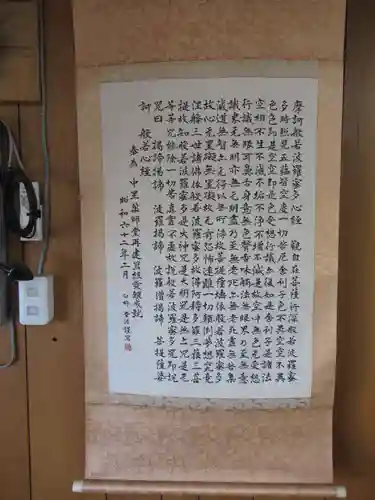 摩訶般若波羅蜜多心経 観自在菩薩行深般若波羅蜜
多時照見五蘊皆空度一切苦厄舎利子色不異空空不異
色色即是空空即是色受想行識亦復如是舎利子是諸法
空相不生不滅不垢不浄不増不減是故空中無色無受想
行識無眼耳鼻舌身意無色声香味触法無眼界乃至無意
識界無無明亦無無明尽乃至無老死亦無老死尽無苦集
滅道無智亦無得以無所得故菩提薩埵依般若波羅蜜多
故心無罣礙無罣礙故無有恐怖遠離一切顛倒夢想究竟
涅槃三世諸仏依般若波羅蜜多故得阿耨多羅三藐三菩
提故知般若波羅蜜多是大神呪是大明呪是無上呪是無
等等呪能除一切苦真実不虚故説般若波羅蜜多呪即説
呪曰 掲諦掲諦 波羅掲諦 波羅僧掲諦 菩提薩婆
訶 般若心経
奉為 中里薬師堂再建写経発願成就
昭和六十二年二月